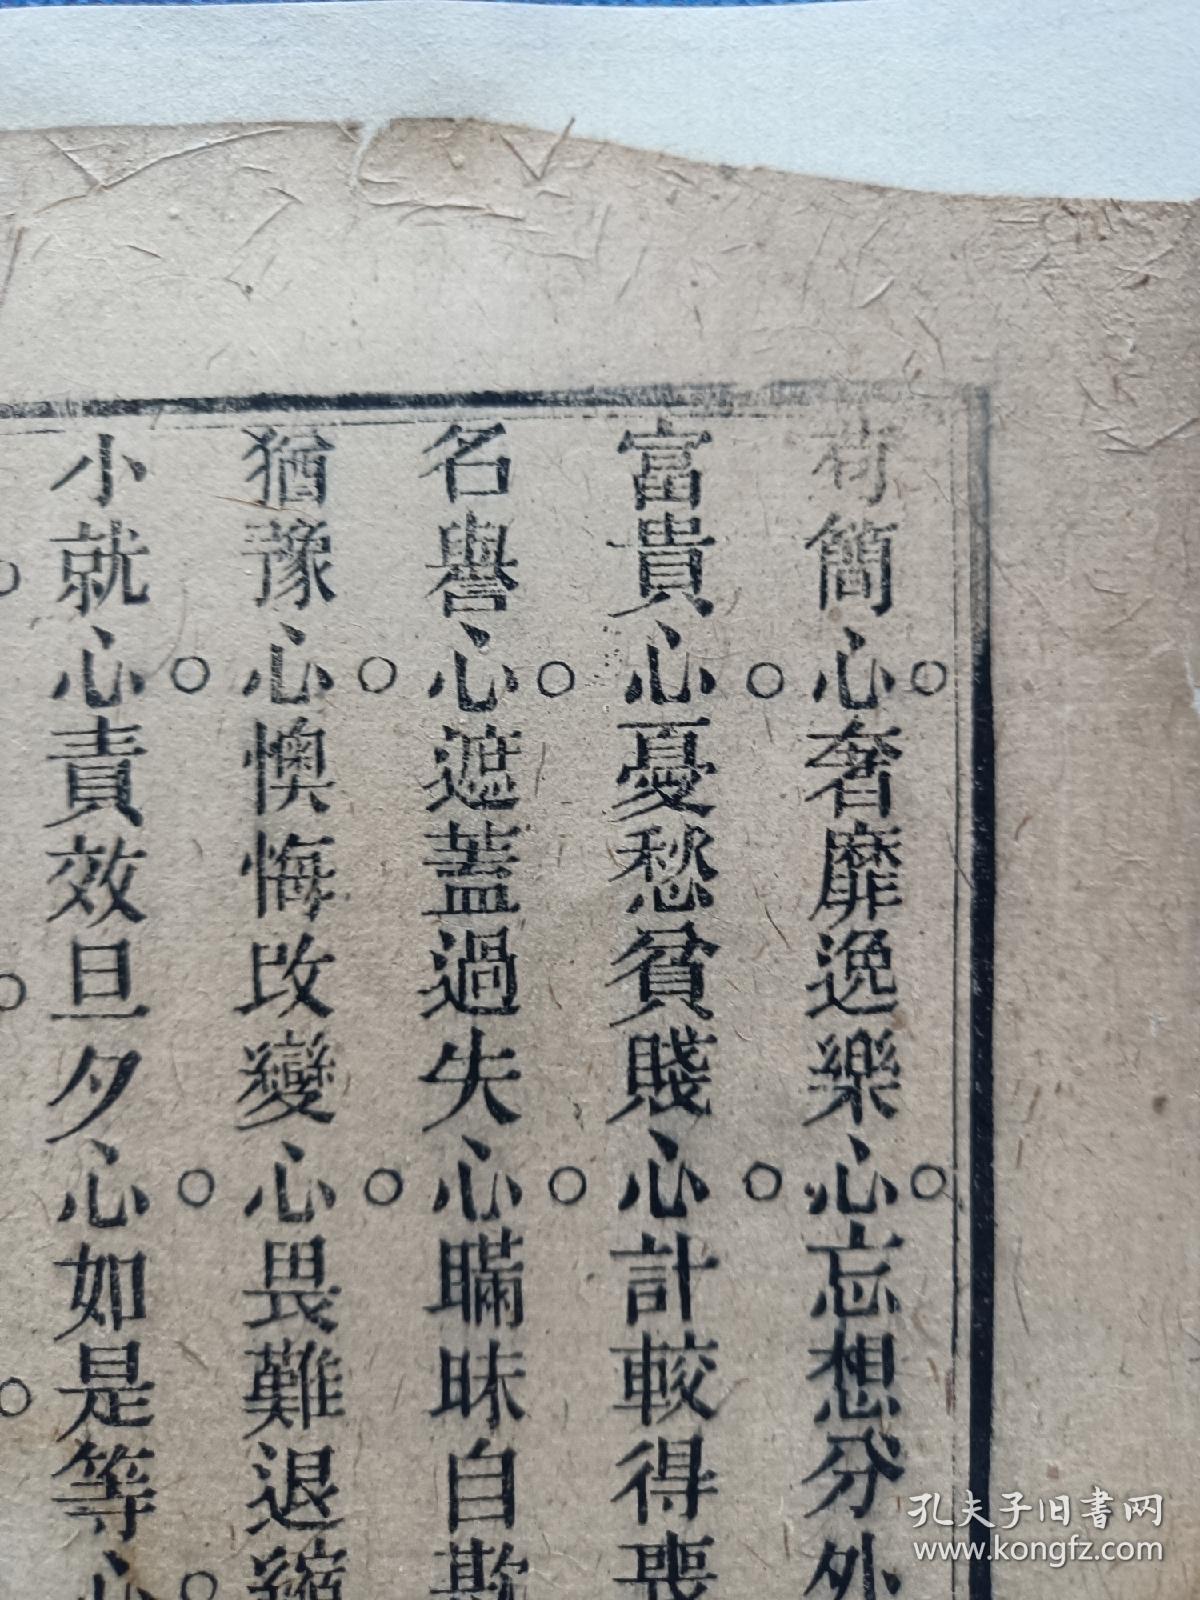 苟簡心。奢靡逸樂心。忘想分外
富貴心。憂愁貧賤心。計較得喪
名譽心。遮蓋過失心。瞞昧自欺
猶豫心。懊悔改變心。畏難退縮
小就心。責效旦夕心。如是等心。
孔夫子旧書网
www.kongfz.com